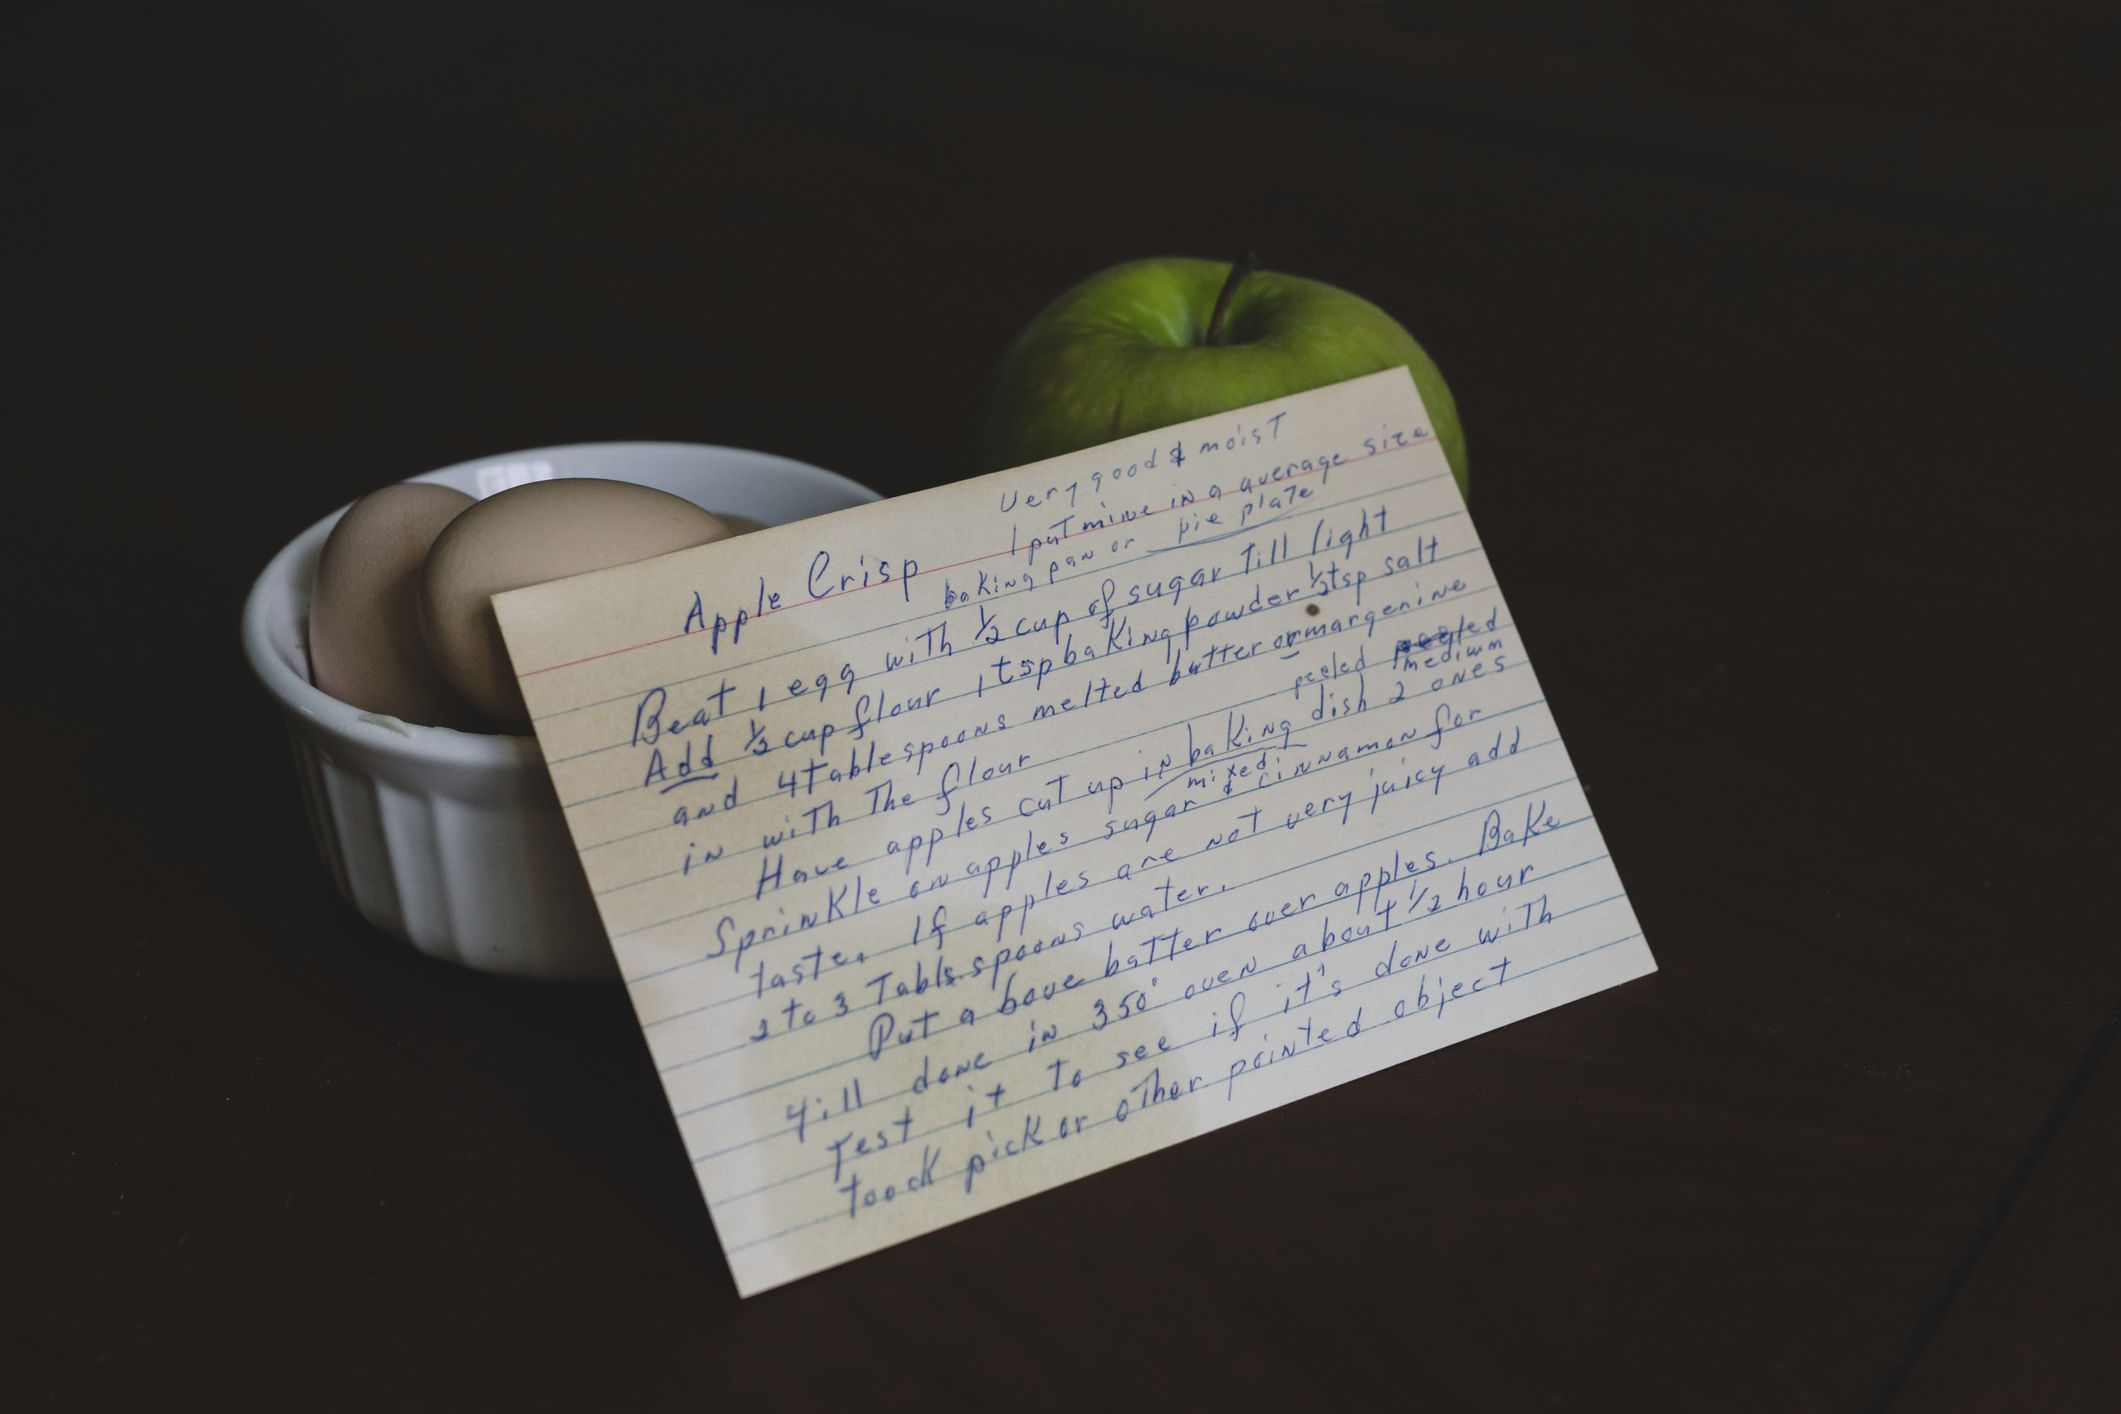 Very good & moist
I put mine in a average size
baking pan or pie plate
Apple Crisp
Beat 1 egg with ½ cup of sugar till light
Add ½ cup flour 1 tsp baking powder ½ tsp salt
and 4 tablespoons melted butter or margenine
in with the flour
peeled medium
Have apples cut up in baking dish 2 ones
mixed
Sprinkle on apples sugar & cinnamon for
taste. If apples are not very juicy add
2 to 3 Tablespoons water.
Put above batter over apples. Bake
till done in 350° oven about ½ hour
Test it to see if it's done with
toock pick or other pointed object